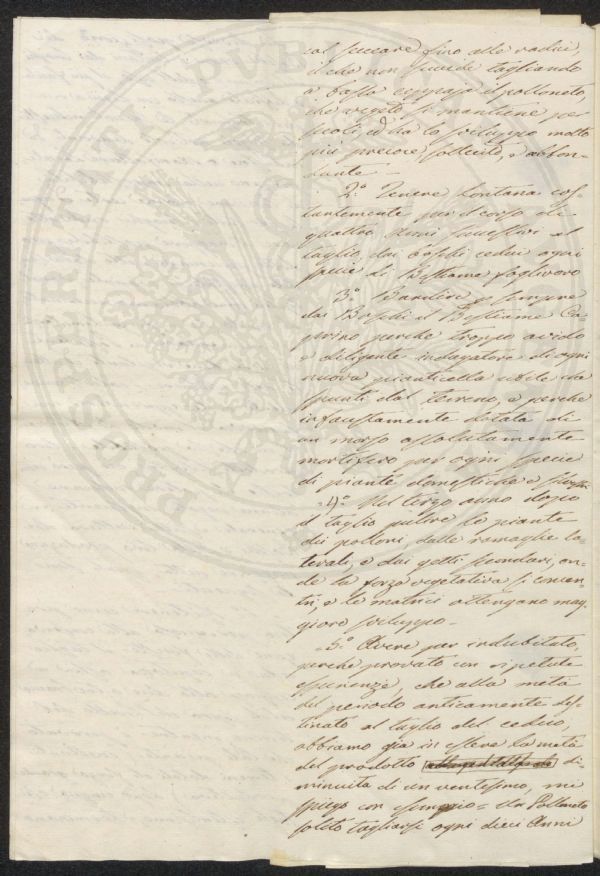 PROSPERITATI PUBLICAE
col seccare fino alle radici,
il che non succede tagliando
a basso ceppaja il polloneto,
che vegeto si mantiene per
secoli, ed ha lo sviluppo molto
più precoce, sollecito, e abbon-
dante —
2.° Tenere lontana cos-
tantemente per il corso di
quattro Anni successivi al
taglio, dai boschi cedui ogni
specie di Bestiame
3.° Bandire p sempre
dai Boschi il Bestiame Ca-
prino perchè troppo avido
e diligente indagatore di ogni
nuova pianticella che
spunti dal terreno, e perchè
infaustamente dotata di
un morso assolutamente
mortifero per ogni specie
di piante domestiche e
4.° Nel terzo anno dopo
il taglio pulire le piante
dei polloni, dalle ramaglie la-
terali, e dai getti secondari, on-
de la forza vegetativa si concen-
tri, e le matrici ottengano mag-
giore sviluppo —
5.° Avere per indubitato,
perchè provato con ripetute
esperienze, che alla metà
del periodo anticamente des-
tinato al taglio del ceduo,
abbiamo già in essere la metà
del prodotto di-
minuita di un ventesimo, mi
spiego con esempio = Un Polloneto
solito tagliarsi ogni dieci Anni